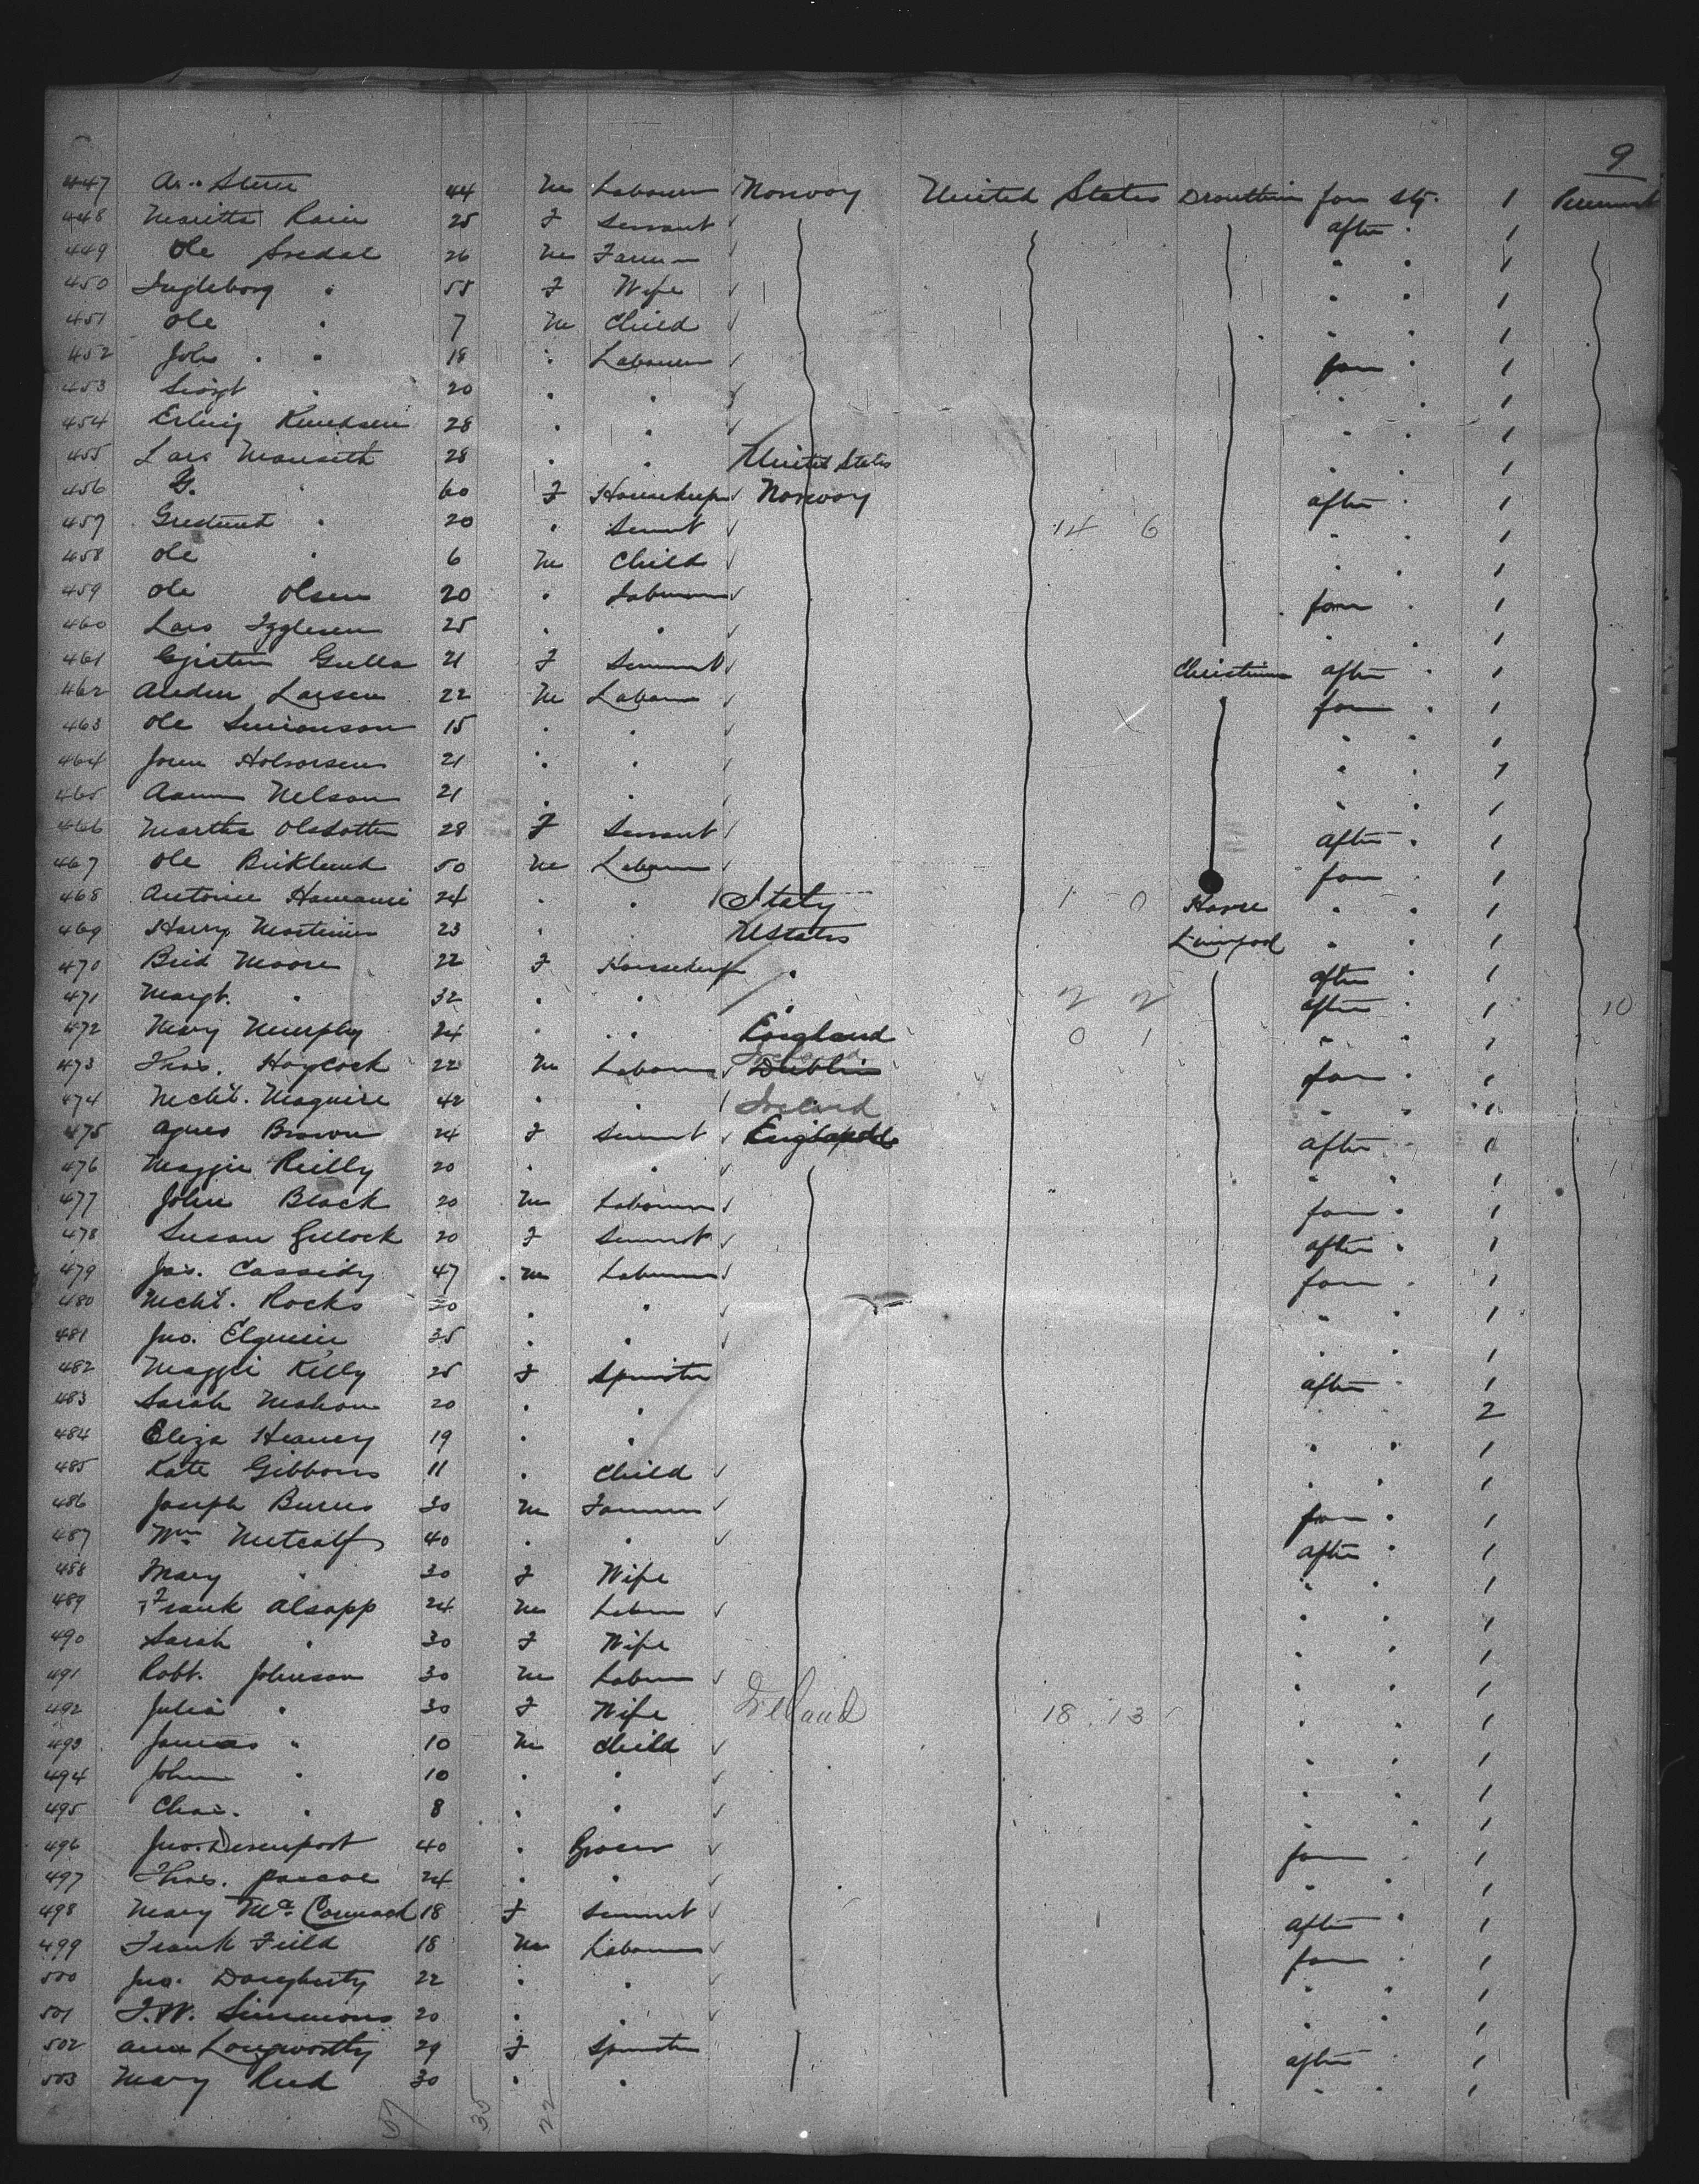 9
447 44 M Labourer Norway United States fore stg. 1
448 Maritta 25 F Servant after . 1
449 Ole Sredal 26 M Farmer " . 1
450 Ingleborg " 55 F Wife " . 1
451 Ole " 7 M Child " . 1
452 John " 18 " Labourer fore . 1
453 " 20 " " " . 1
454 Erling Knudsen 28 " " " . 1
455 Lars 28 " " United States " . 1
456 G. " 60 F Housekeeper Norway after . 1
457 " 20 " Servant 14 6 " . 1
458 Ole " 6 M Child " . 1
459 Ole Olsen 20 " Labourer fore . 1
460 Lars 25 " " " . 1
461 Gulla 21 F Servant after . 1
462 Larsen 22 M Labourer fore . 1
463 Ole Simonson 15 " " " . 1
464 Halvorsen 21 " " " . 1
465 Nelson 21 " " " . 1
466 Martha Olsdotter 28 F Servant after . 1
467 Ole Birklund 50 M Labourer fore . 1
468 Antonie 24 " " Italy 1 0 Havre " . 1
469 Harry 23 " " UStates Liverpool " . 1
470 Brid Moore 22 F Housekeep " after . 1
471 Margt. " 32 " " " 2 2 after . 1 10
472 Mary Murphy 24 " " England 0 1 " . 1
473 Thos. Haycock 22 M Labourer Dublin fore . 1
474 Michl. Maguire 42 " " Ireland " . 1
475 Agnes Brown 24 F Servant England after . 1
476 Maggie Reilly 20 " " " . 1
477 John Black 20 M Labourer fore . 1
478 Susan 20 F Servant after . 1
479 Jas. Cassidy 47 M Labourer fore . 1
480 Michl. Rocks 30 " " " . 1
481 Jno. 35 " " " . 1
482 Maggie Kelly 25 F Spinster after . 1
483 Sarah Mahon 20 " " " . 2
484 Eliza Heaney 19 " " " . 1
485 Kate Gibbons 11 " Child " . 1
486 Joseph Burns 30 M Farmer fore . 1
487 Wm Metcalf 40 " " after . 1
488 Mary " 30 F Wife " . 1
489 Frank Alsopp 24 M Labour " . 1
490 Sarah " 30 F Wife " . 1
491 Robt. Johnson 30 M Labour " . 1
492 Julia " 30 F Wife Ireland 18 13 " . 1
493 James " 10 M Child " . 1
494 John " 10 " " " . 1
495 Chas. " 8 " " " . 1
496 Jno. Davenport 40 " Grocer fore . 1
497 Thos. Pascoe 24 " " " . 1
498 Mary McCormack 18 F Servant after . 1
499 Frank Field 18 M Labourer fore . 1
500 Jno. Dougherty 22 " " " . 1
501 J.W. Simmons 20 " " " . 1
502 Ann Longworthy 29 F Spinster after . 1
503 Mary Reed 30 " " " . 1
57 35 22